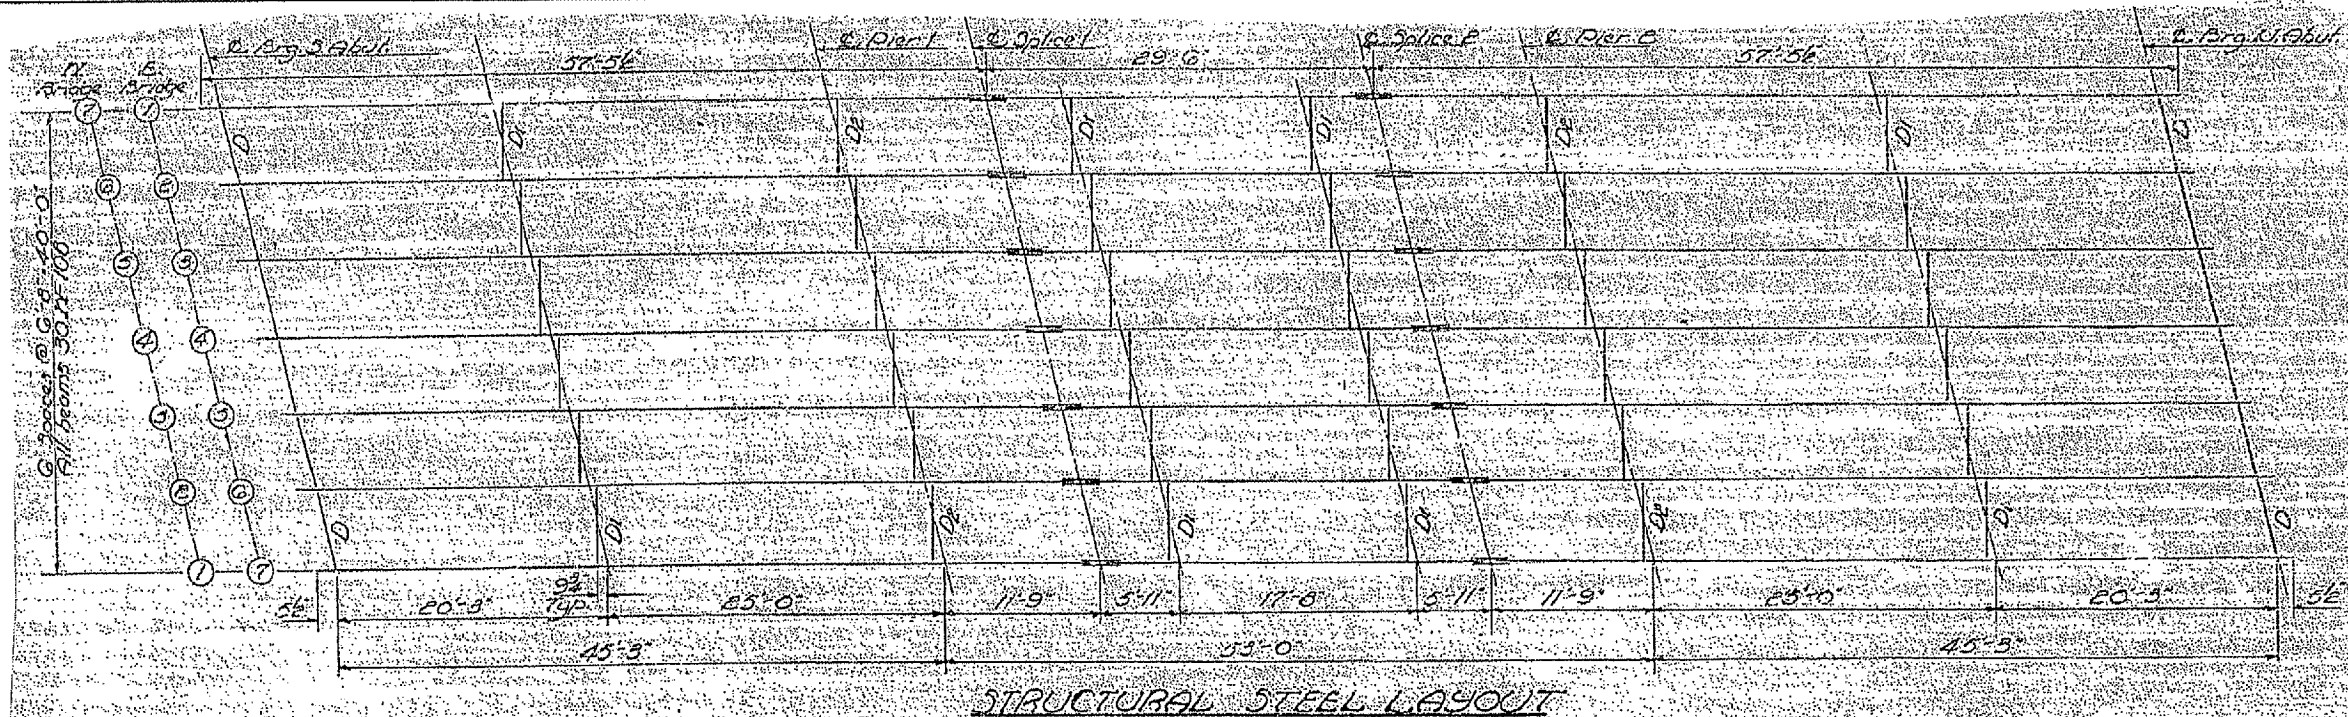 ℄ Brg. S. Abut.
℄ Pier 1
℄ Splice 1
℄ Splice 2
℄ Pier 2
℄ Brg. N. Abut.
57'-5½"
29'-6"
57'-5½"
Bridge
Bridge
7 1
6 2
5 3
4 4
3 5
2 6
1 7
6 Spaces @ 6'-8" = 40'-0"
All beams 30
D D1 D2 D1 D1 D2 D1 D
D D1 D2 D1 D1 D2 D1 D
5½"
20'-3"
9¾"
Typ.
25'-0"
11'-9"
5'-11"
17'-8"
5'-11"
11'-9"
25'-0"
20'-3"
5½"
45'-3"
53'-0"
45'-3"
STRUCTURAL STEEL LAYOUT